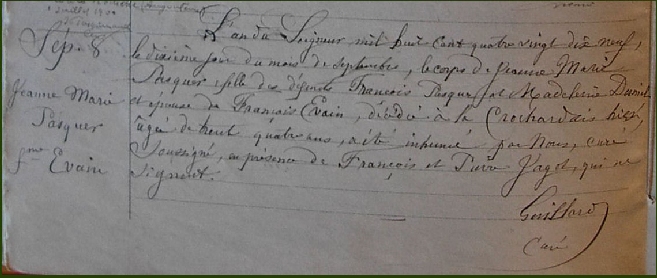 Sép. 8
Jeanne Marie
Pasquer
fme Evain
L'an du Seigneur mil huit cent quatre vingt dix neuf,
le dixième jour du mois de septembre, le corps de Jeanne Marie
Pasquer fille des défunts François Pasquer et Madeleine
et épouse de François Evain, décédée à la Crochardais hier,
âgée de trent quatre ans, a été inhumé par Nous, curé
soussigné, en présence de François et Pierre Yagot, qui ne
signent.
Guillard
Curé